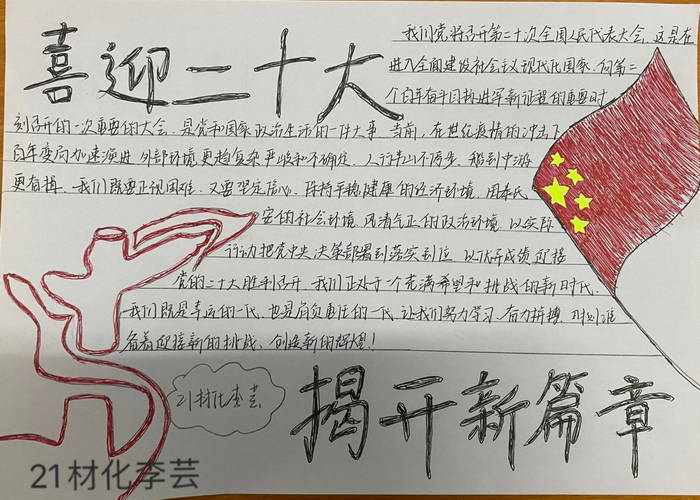 喜迎二十大
我们党将召开第二十次全国人民代表大会。这是在
进入全面建设社会主义现代化国家、向第二
个百年奋斗目标进军新征程的重要时
刻召开的一次重要的大会，是党和国家政治生活的一件大事。当前，在世纪疫情的冲击下
百年变局加速演进，外部环境更趋复杂严峻和不确定，人行半山不停步，船到中游
更奋楫，我们既要正视困难，又要坚定信心，保持平稳健康的经济环境、国泰民
安的社会环境、风清气正的政治环境，以实际
行动把党中央决策部署到落实到位，以优异成绩迎接
党的二十大胜利召开。我们正处于一个充满希望和挑战的新时代，
我们既是幸运的一代，也是肩负重任的一代，让我们努力学习，奋力拼搏，时刻准
备着迎接新的挑战、创造新的辉煌！
21材化李芸
揭开新篇章
21材化李芸